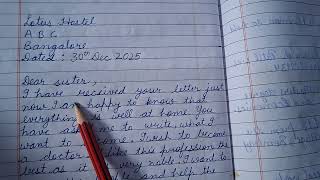 Lotus Hostel
A B C
Bangalore
Dated : 30th Dec 2025
Dear sister,
I have received your letter just
now I am happy to know that
everything is well at home. You
have ask me to write, what I
want to become. I wish to become
a doctor I like this profession the
best as it is very noble. I want to
and help the